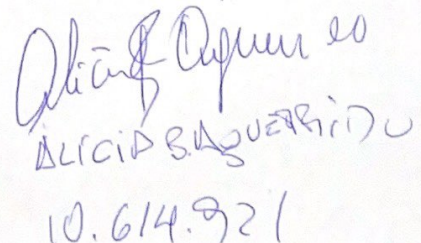 Alicia B Aguerrido
ALICIA B. AGUERRIDO
10.614.921